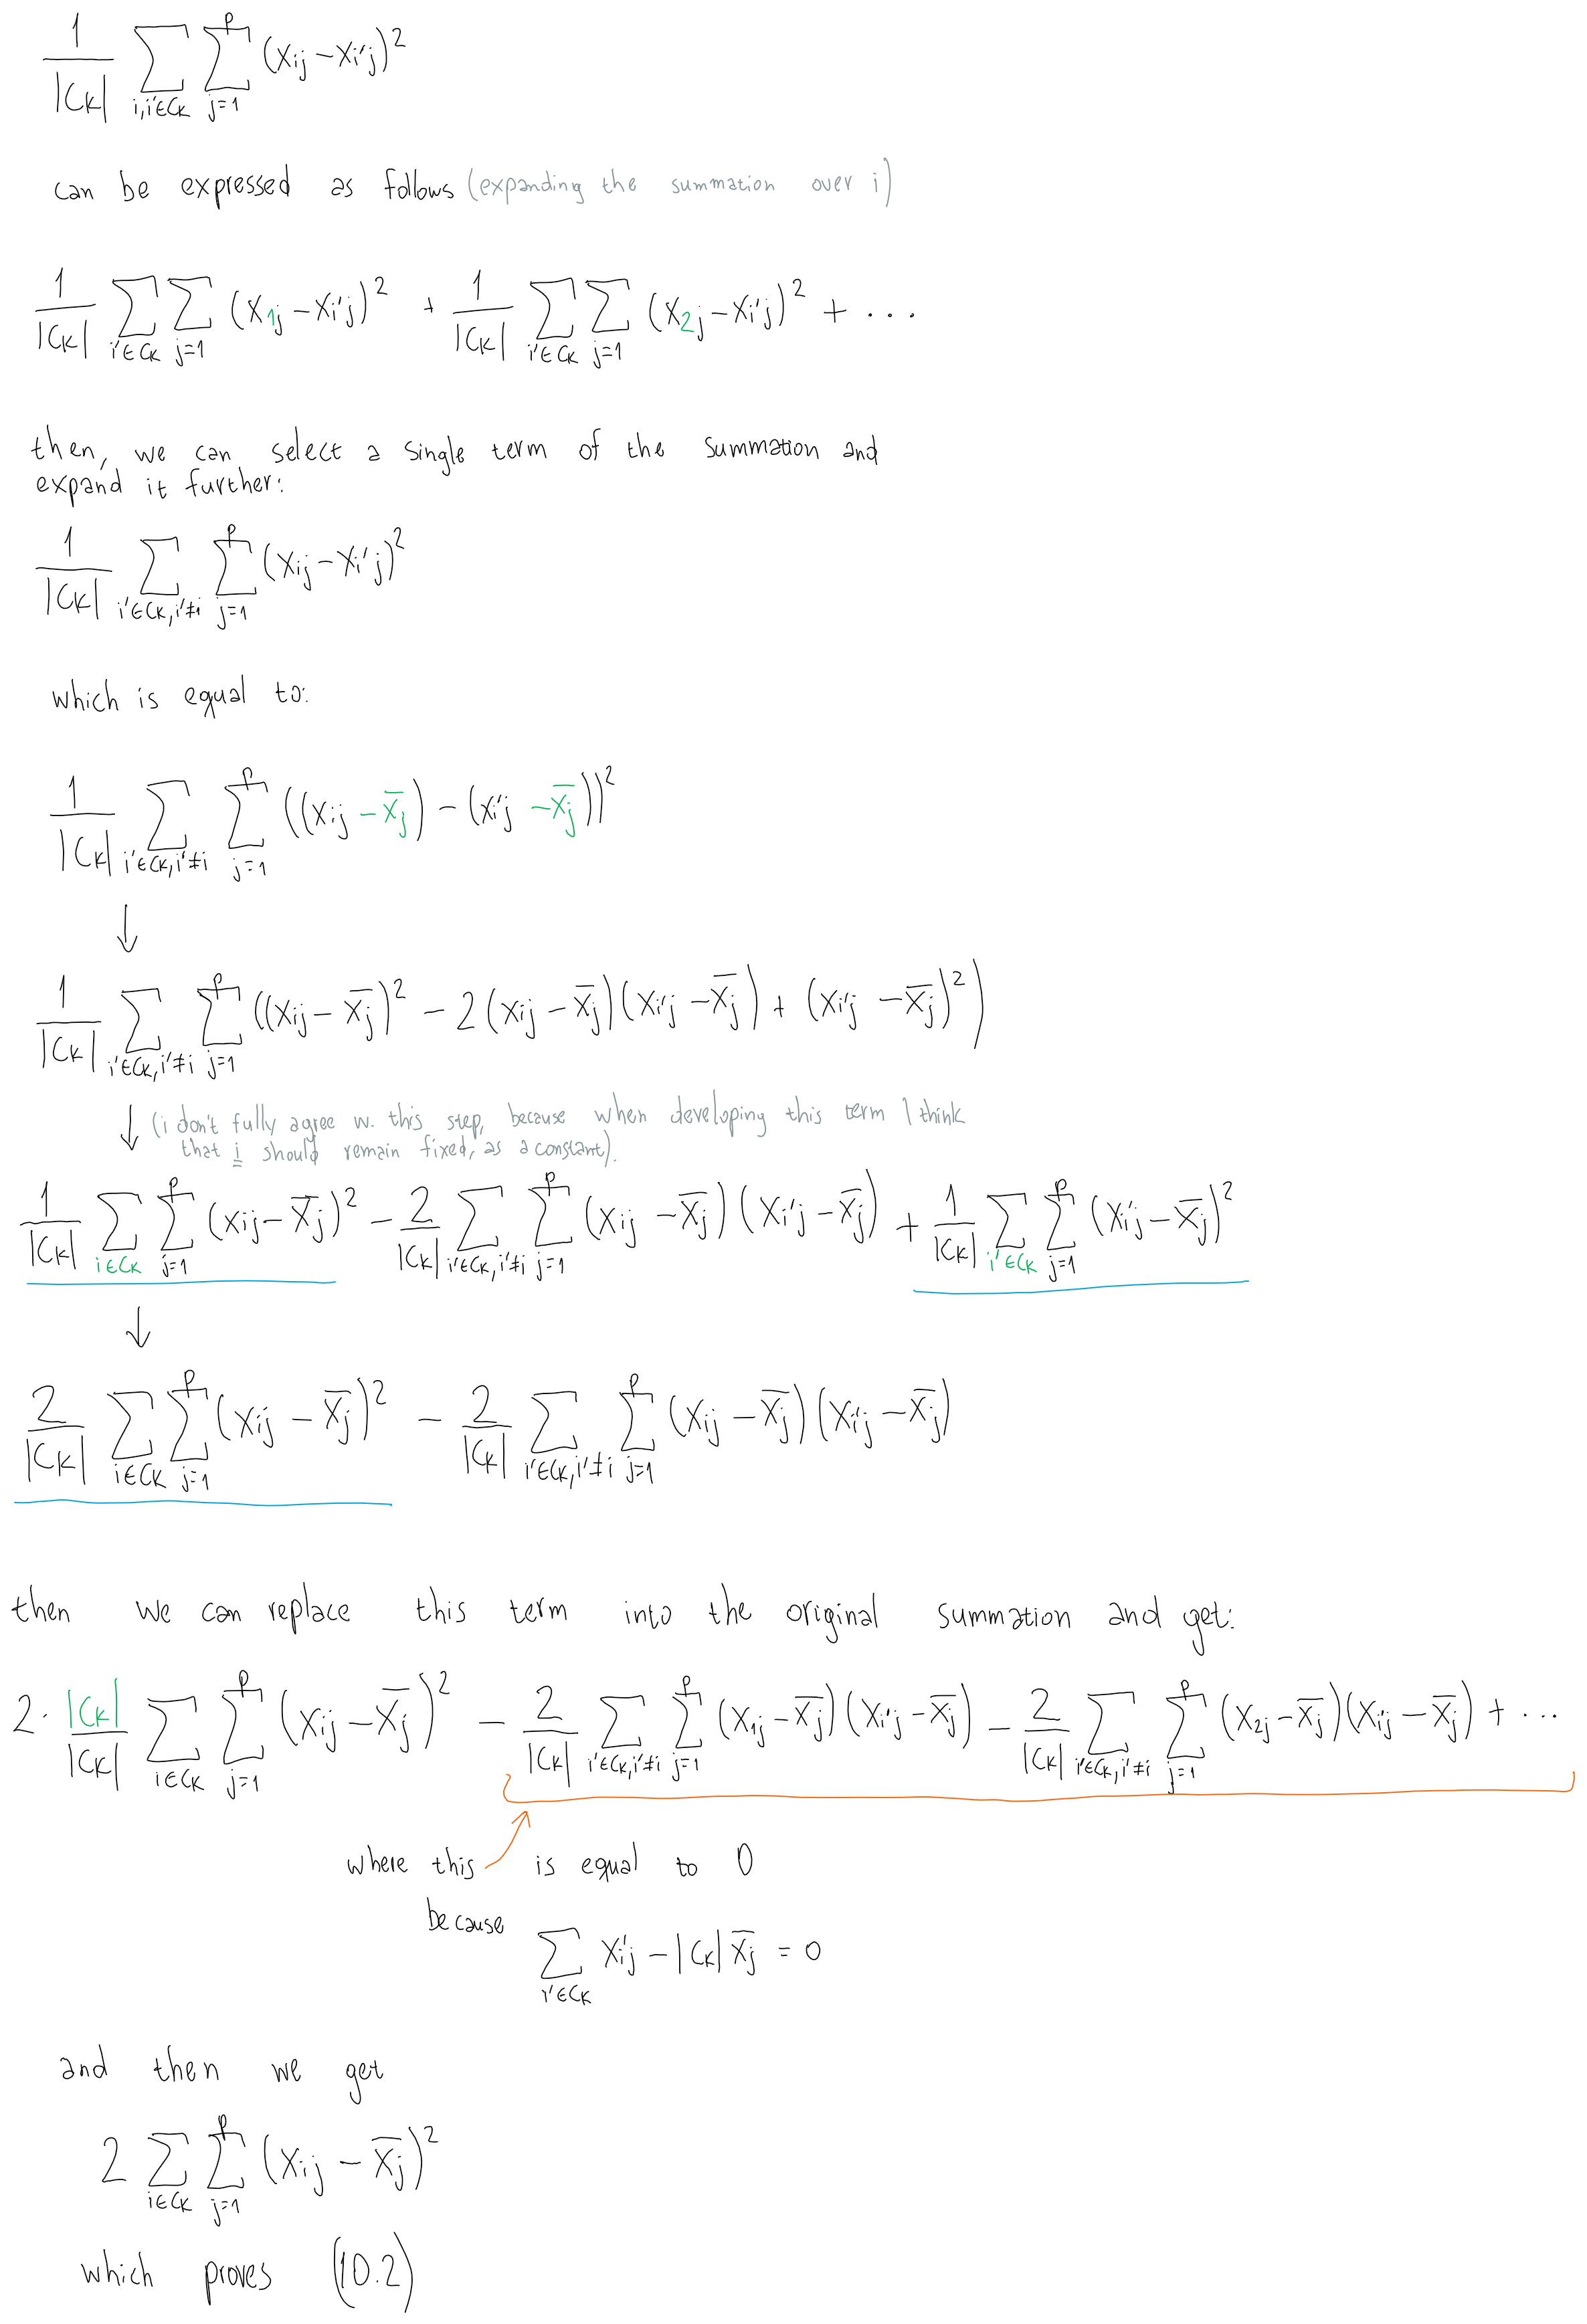 1/|Cₖ| Σ_{i,i'∈Cₖ} Σ_{j=1}^{p} (xᵢⱼ − xᵢ'ⱼ)²
can be expressed as follows (expanding the summation over i)
1/|Cₖ| Σ_{i'∈Cₖ} Σ_{j=1} (x₁ⱼ − xᵢ'ⱼ)² + 1/|Cₖ| Σ_{i'∈Cₖ} Σ_{j=1} (x₂ⱼ − xᵢ'ⱼ)² + ...
then, we can select a single term of the summation and
expand it further:
1/|Cₖ| Σ_{i'∈Cₖ, i'≠i} Σ_{j=1}^{p} (xᵢⱼ − xᵢ'ⱼ)²
which is equal to:
1/|Cₖ| Σ_{i'∈Cₖ, i'≠i} Σ_{j=1}^{p} ((xᵢⱼ − x̄ⱼ) − (xᵢ'ⱼ − x̄ⱼ))²
↓
1/|Cₖ| Σ_{i'∈Cₖ, i'≠i} Σ_{j=1}^{p} ((xᵢⱼ − x̄ⱼ)² − 2(xᵢⱼ − x̄ⱼ)(xᵢ'ⱼ − x̄ⱼ) + (xᵢ'ⱼ − x̄ⱼ)²)
↓ (i don't fully agree w. this step, because when developing this term I think
that i should remain fixed, as a constant).
1/|Cₖ| Σ_{i∈Cₖ} Σ_{j=1}^{p} (xᵢⱼ − x̄ⱼ)² − 2/|Cₖ| Σ_{i'∈Cₖ, i'≠i} Σ_{j=1}^{p} (xᵢⱼ − x̄ⱼ)(xᵢ'ⱼ − x̄ⱼ) + 1/|Cₖ| Σ_{i'∈Cₖ} Σ_{j=1}^{p} (xᵢ'ⱼ − x̄ⱼ)²
↓
2/|Cₖ| Σ_{i∈Cₖ} Σ_{j=1}^{p} (xᵢⱼ − x̄ⱼ)² − 2/|Cₖ| Σ_{i'∈Cₖ, i'≠i} Σ_{j=1}^{p} (xᵢⱼ − x̄ⱼ)(xᵢ'ⱼ − x̄ⱼ)
then we can replace this term into the original summation and get:
2 · |Cₖ|/|Cₖ| Σ_{i∈Cₖ} Σ_{j=1}^{p} (xᵢⱼ − x̄ⱼ)² − 2/|Cₖ| Σ_{i'∈Cₖ, i'≠i} Σ_{j=1}^{p} (x₁ⱼ − x̄ⱼ)(xᵢ'ⱼ − x̄ⱼ) − 2/|Cₖ| Σ_{i'∈Cₖ, i'≠i} Σ_{j=1}^{p} (x₂ⱼ − x̄ⱼ)(xᵢ'ⱼ − x̄ⱼ) + ...
where this is equal to 0
because
Σ_{i'∈Cₖ} xᵢ'ⱼ − |Cₖ| x̄ⱼ = 0
and then we get
2 Σ_{i∈Cₖ} Σ_{j=1}^{p} (xᵢⱼ − x̄ⱼ)²
which proves (10.2)